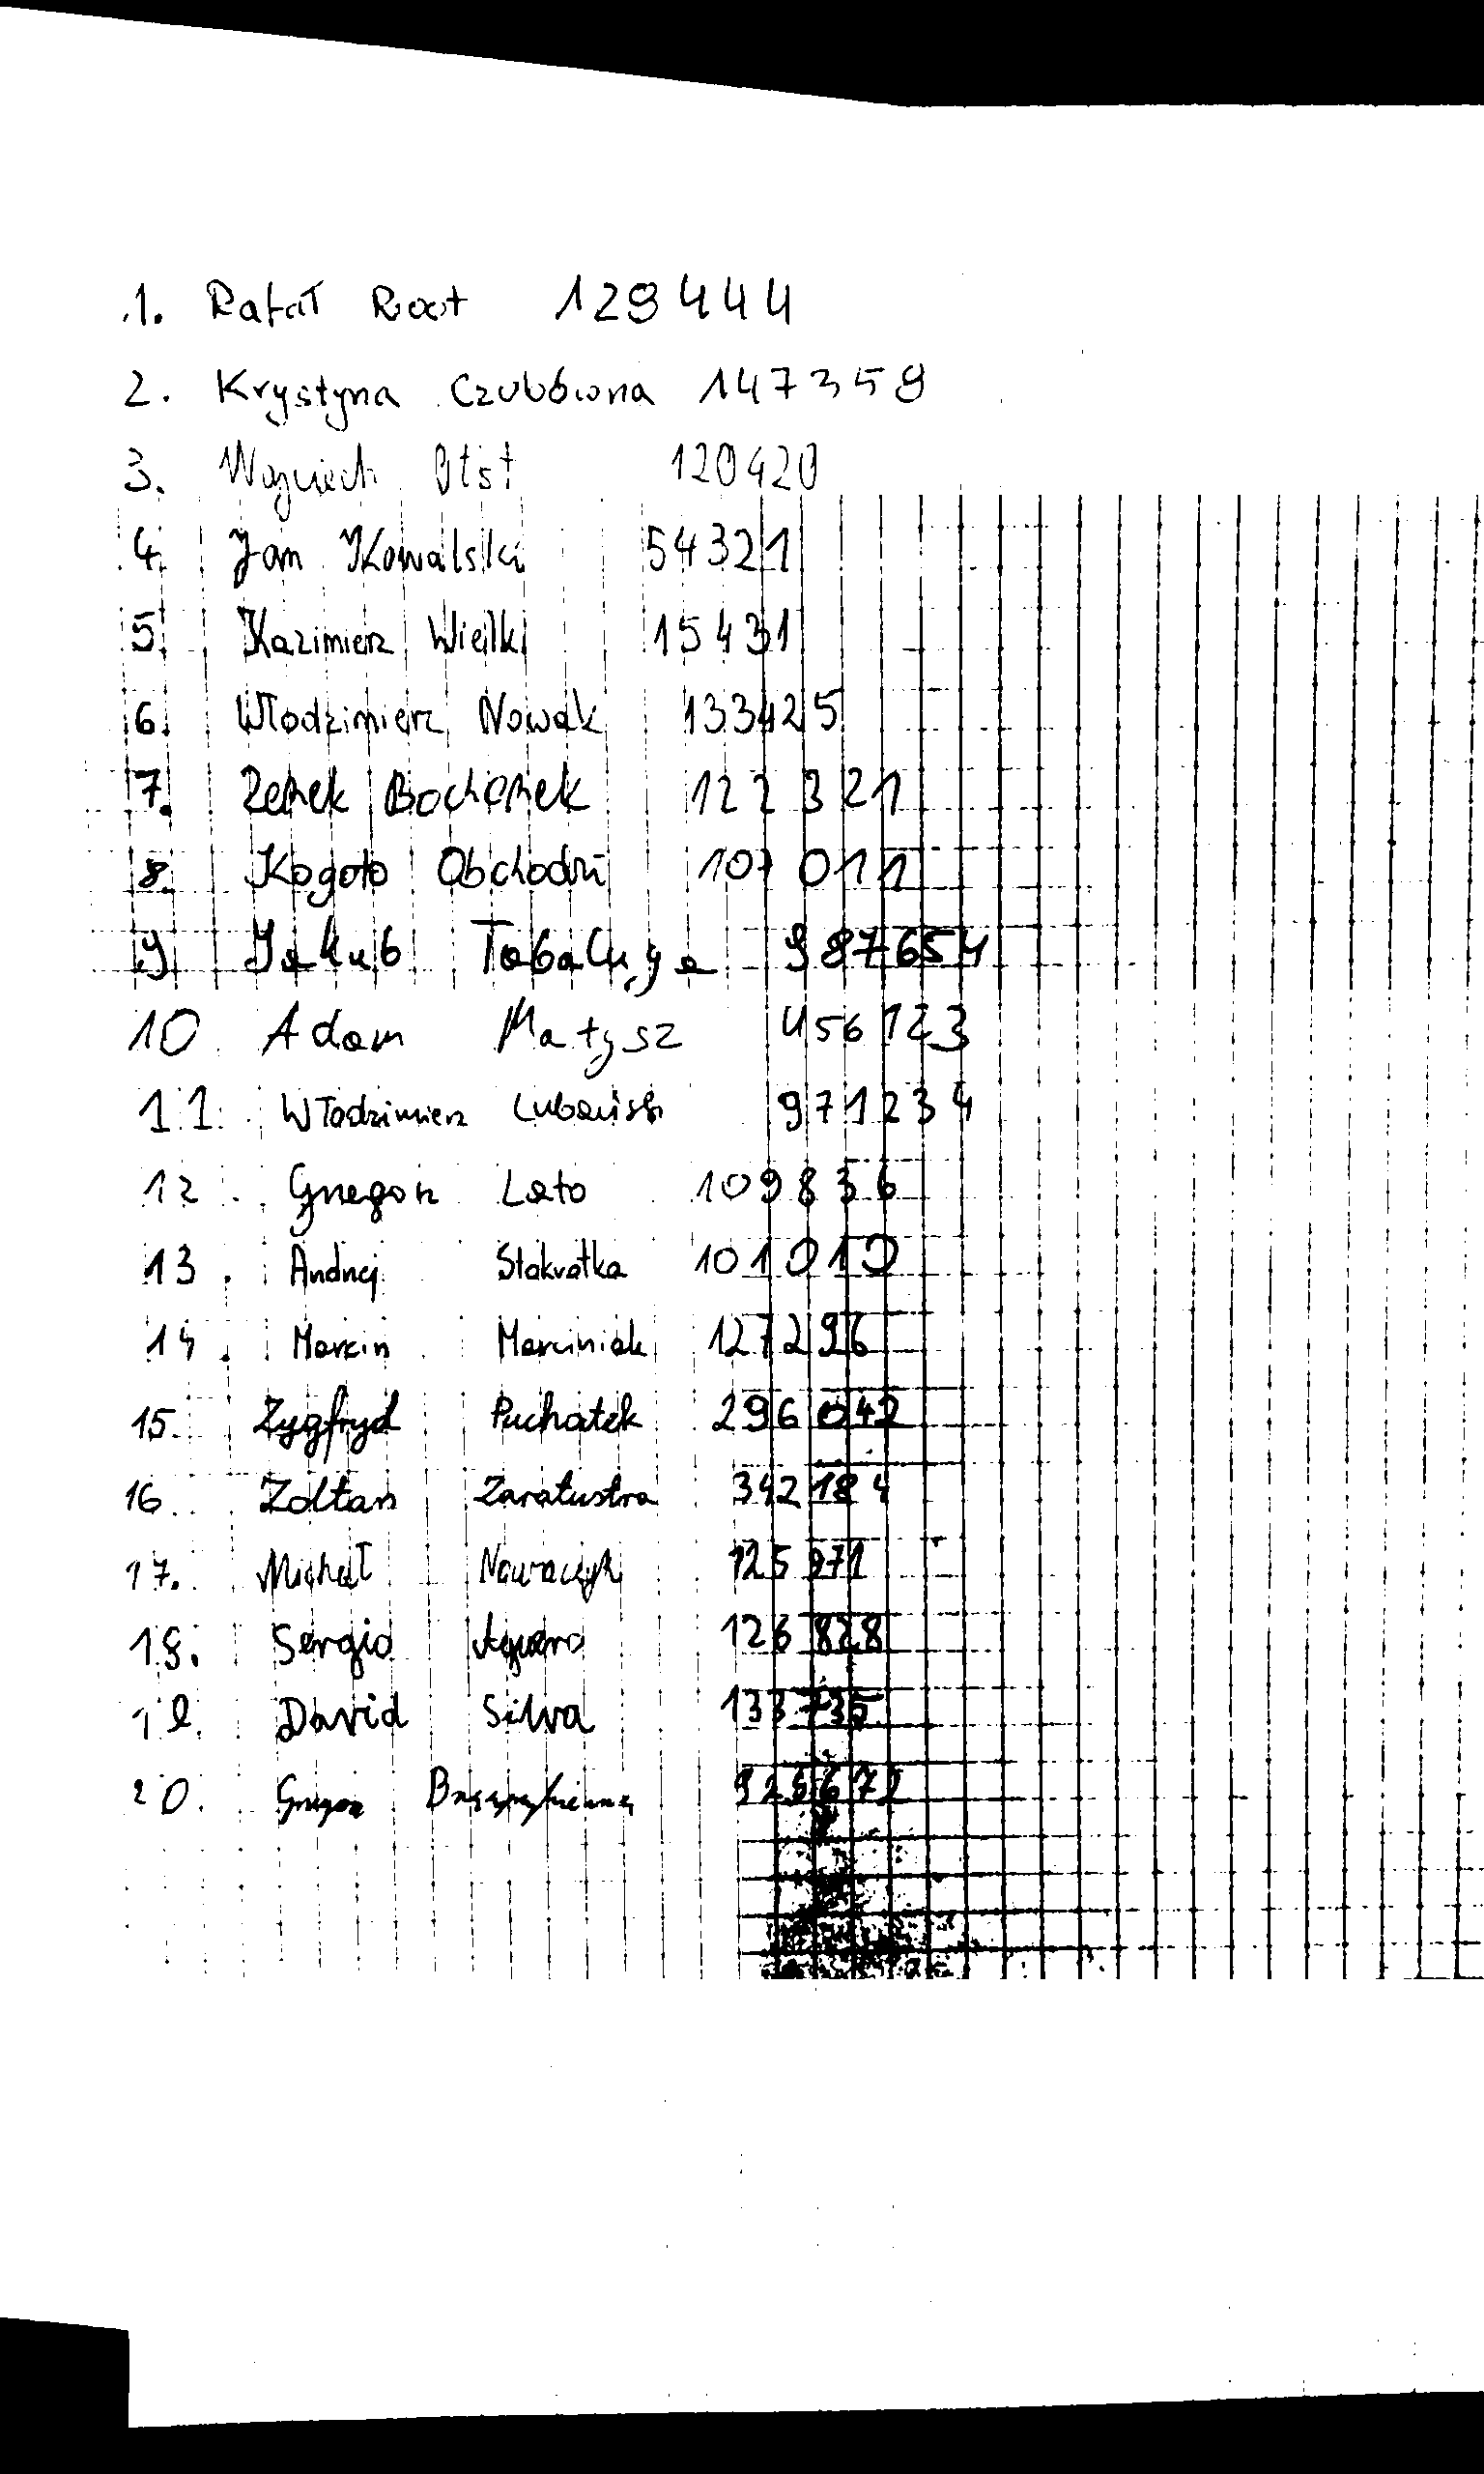 1. Rafał Root 129444
2. Krystyna Czubówna 147359
3. Wojciech 120420
4. Jan Kowalski 54321
5. Kazimierz Wielki 15431
6. Włodzimierz Nowak 133425
7. Zenek Bochenek 122321
8. Kogoto Obchodzi 107011
9 Jakub Tabaluga 987654
10. Adam Małysz 456123
11. Włodzimierz Lubański 971234
12. Grzegorz Lato 109836
13. Andrzej Stokrotka 101010
14. Marcin Marciniak 127296
15. Zygfryd Puchatek 296042
16. Zoltan Zaratustra 342184
17. Michał Nowaczyk 125971
18. Sergio Aguero 126828
19. David Silva 133735
20. Grzegorz 926672